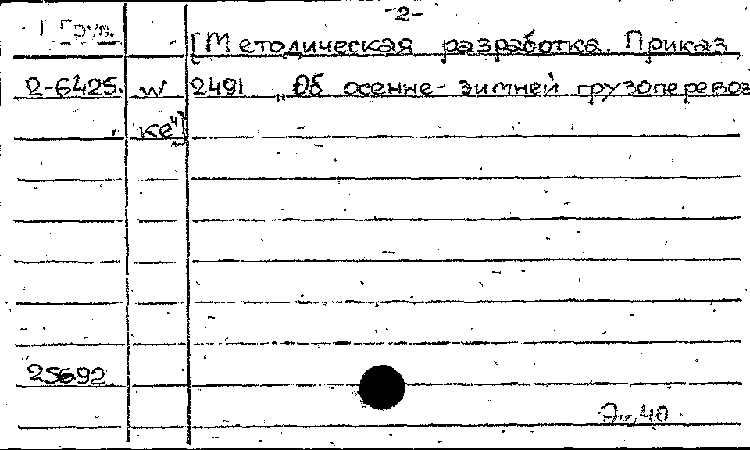 -2-
1 Грув.
[Методическая разработка. Приказ
2-6425. № 2491 „Об осенне-зимней грузоперевоз
ке"]
25692
40